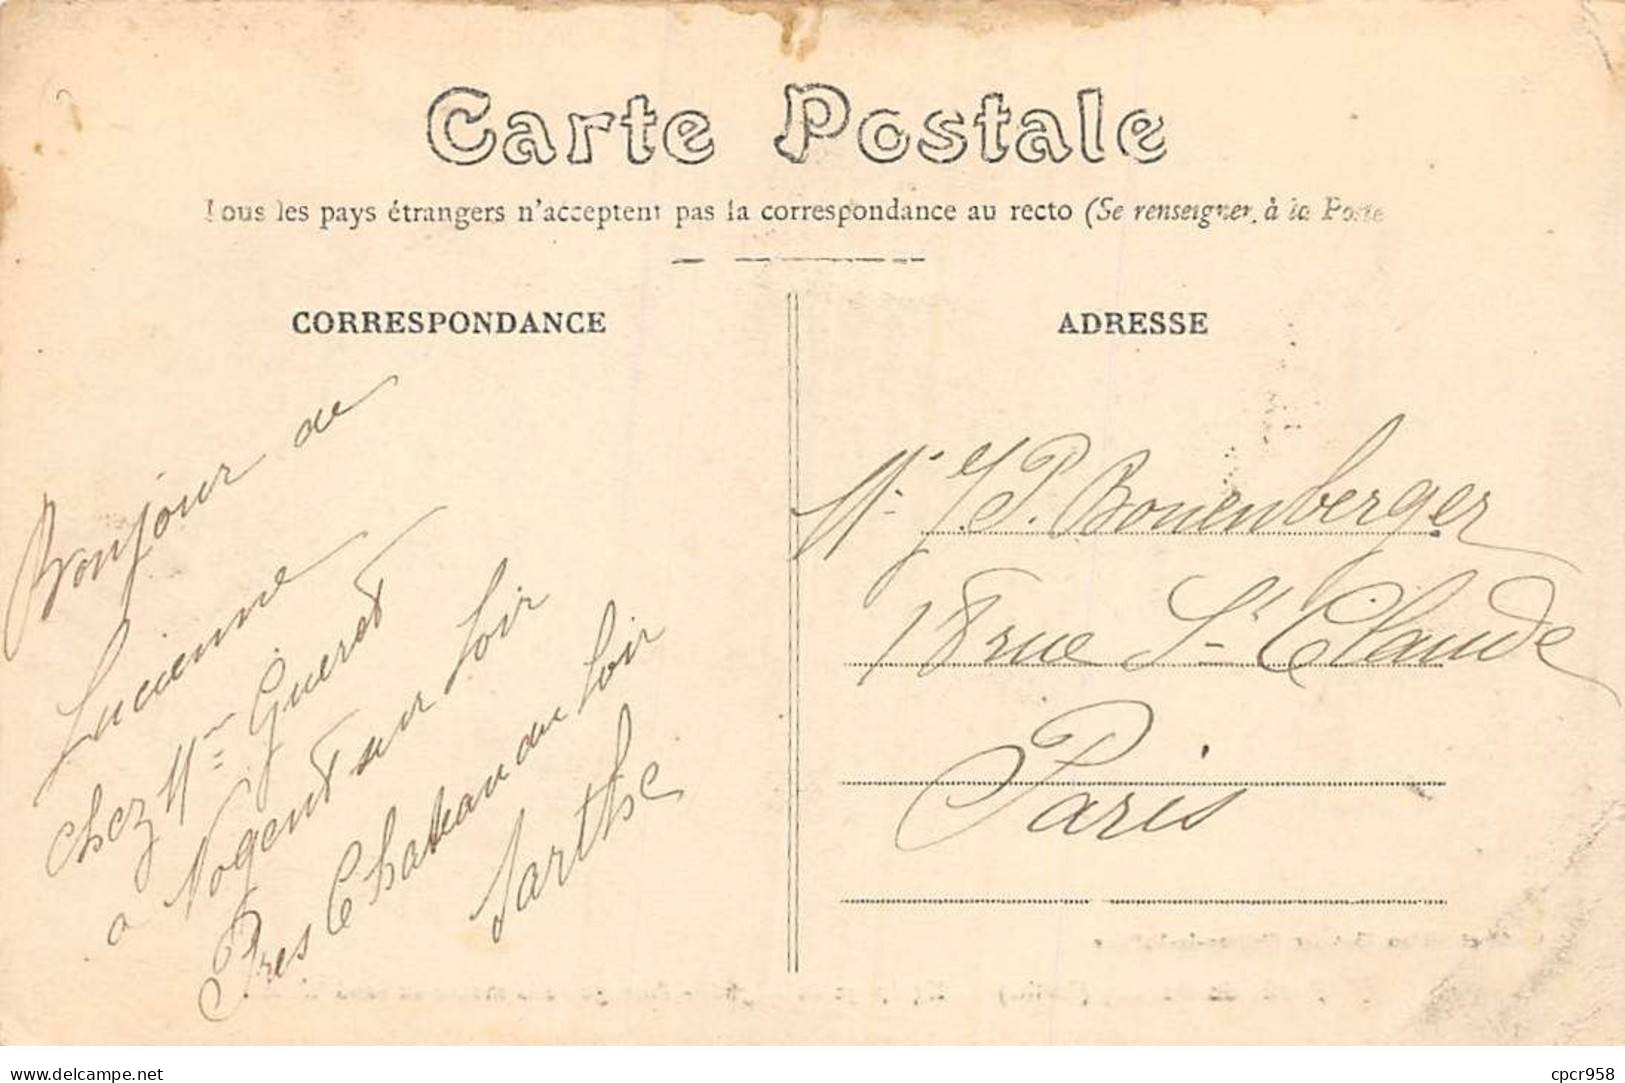 Carte Postale
Tous les pays étrangers n'acceptent pas la correspondance au recto (Se renseigner à la Poste
CORRESPONDANCE
ADRESSE
Bonjour de
Lucienne
chez Mr Gueret
a Nogent sur Loir
Pres le Chateau du Loir
Sarthe
Mr J. P. Bonenberger
18 rue St Claude
Paris
www.delcampe.net
cpcr958